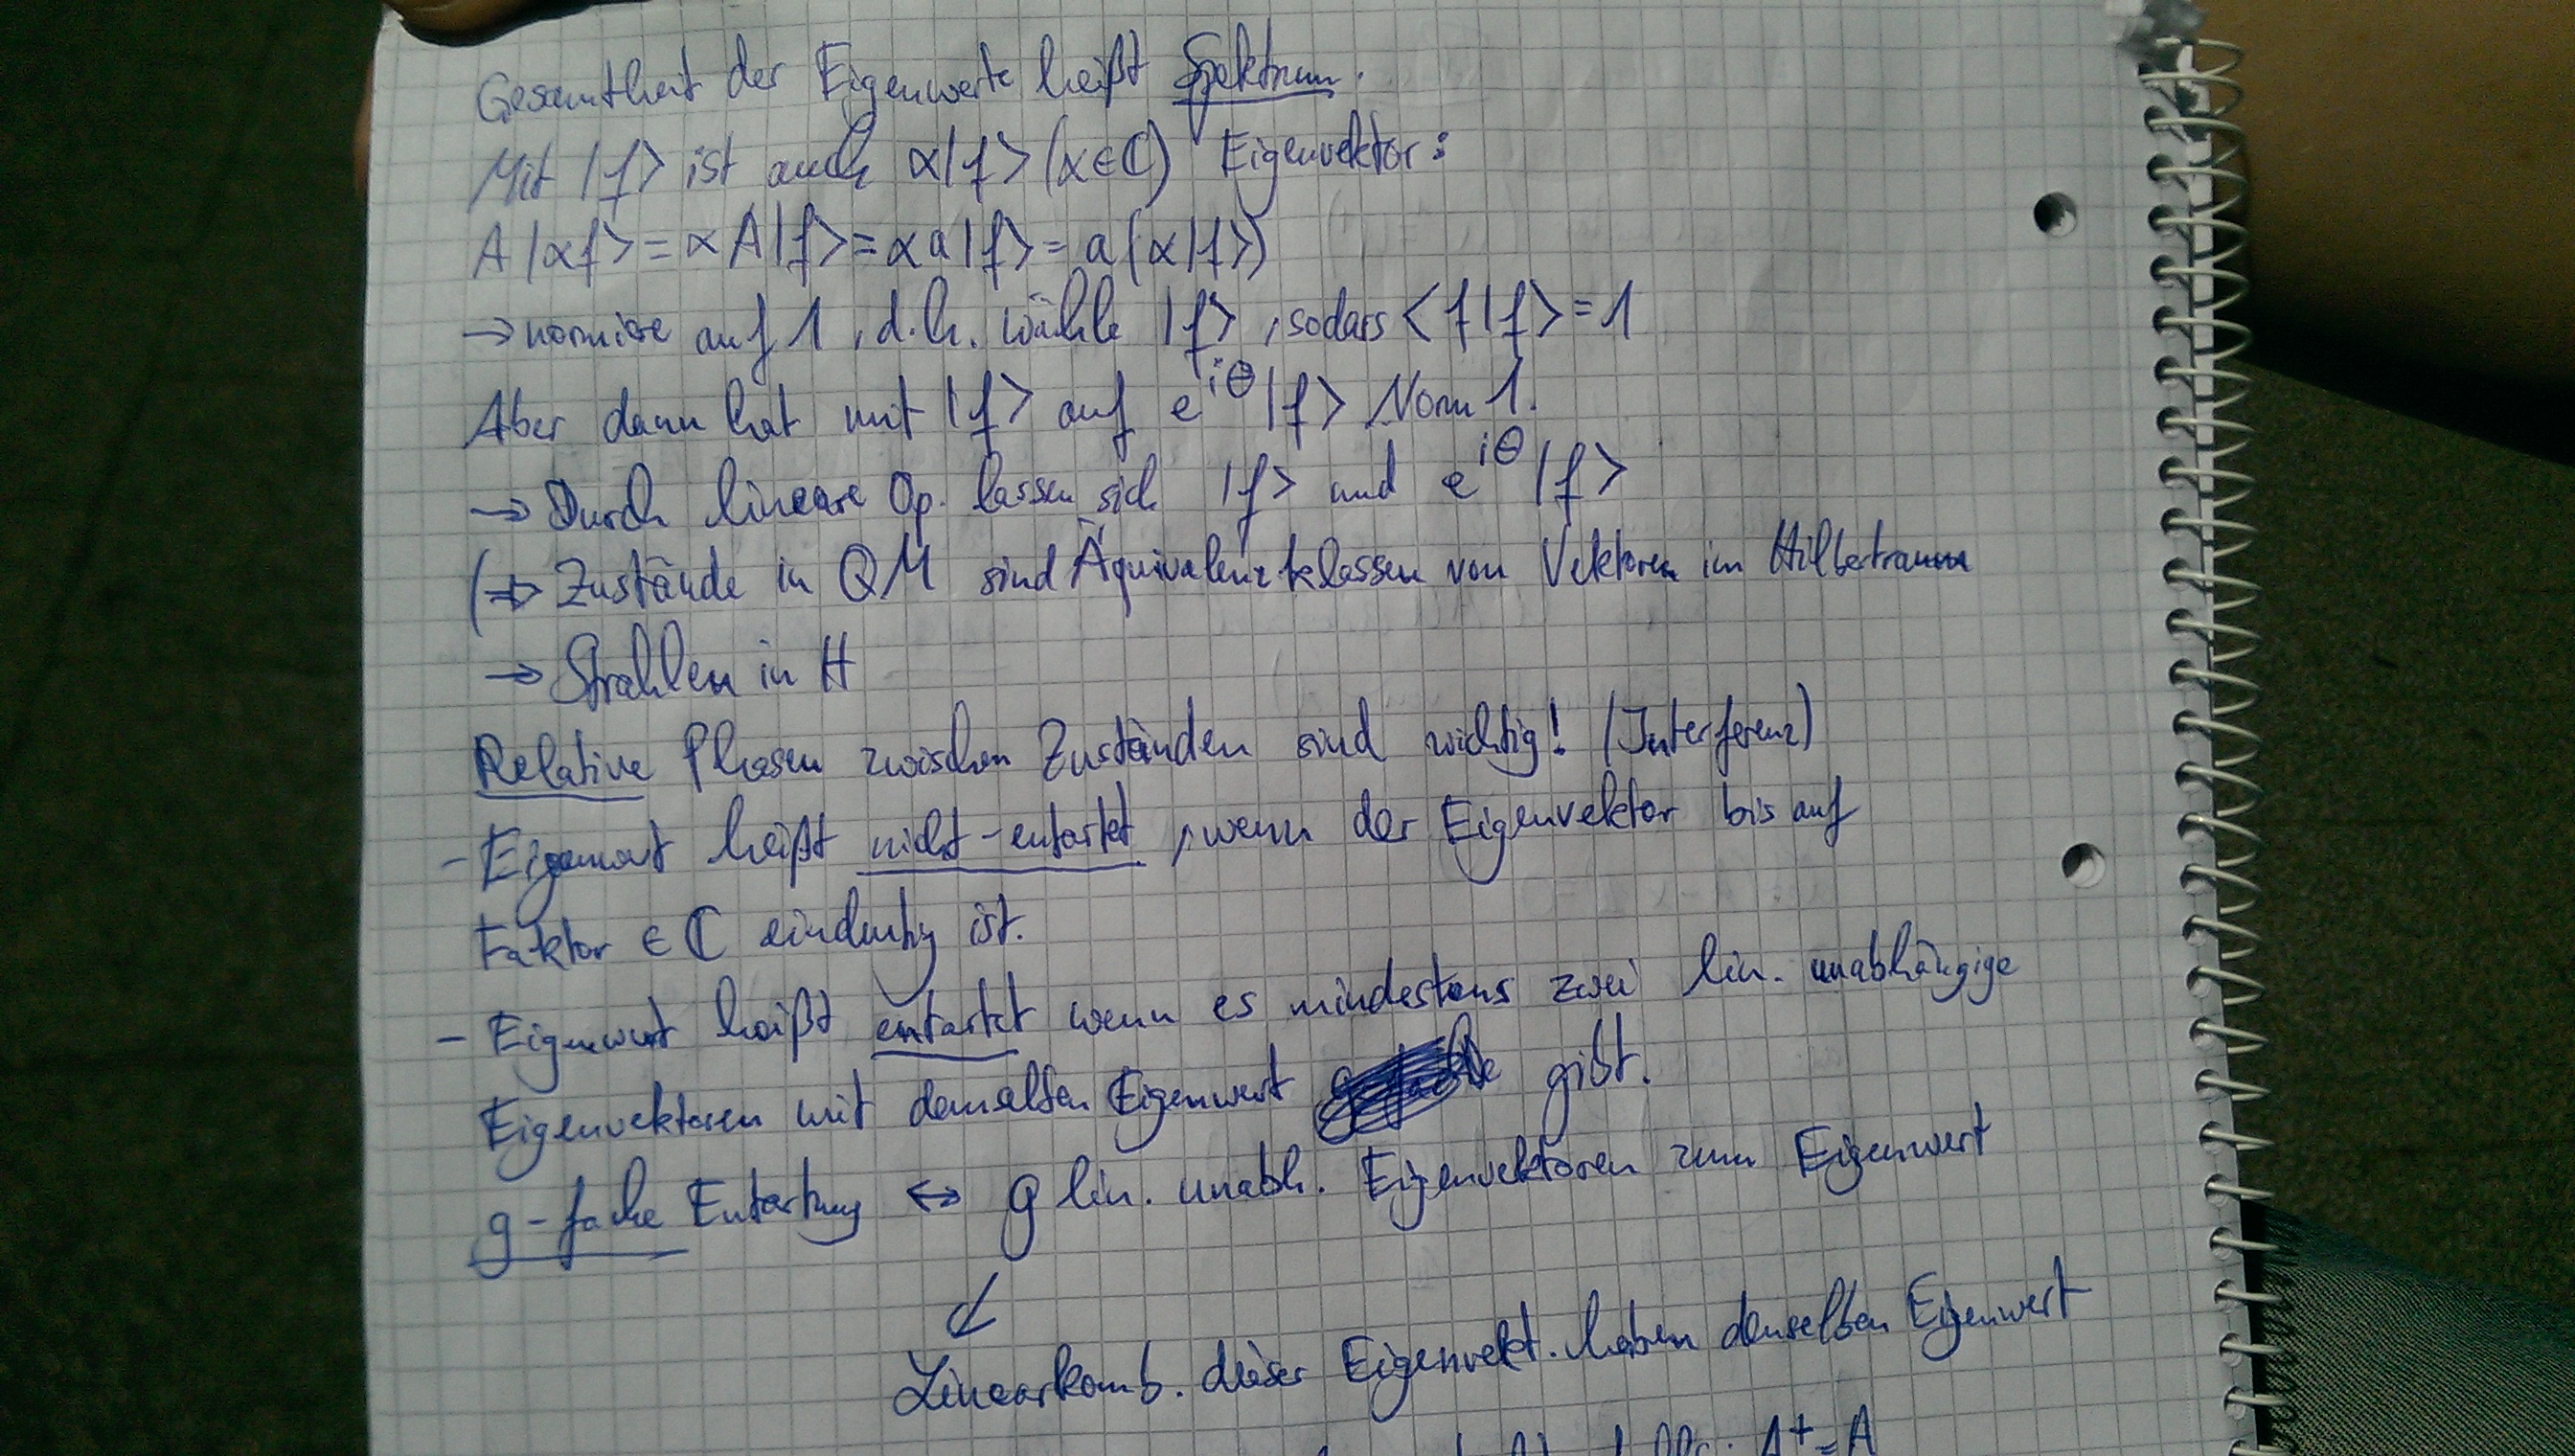 Gesamtheit der Eigenwerte heißt Spektrum.
Mit |f> ist auch α|f> (α∈ℂ) Eigenvektor:
A|αf> = αA|f> = αa|f> = a(α|f>)
→ normiere auf 1, d.h. wähle |f>, sodass <f|f> = 1
Aber dann hat mit |f> auf e^{iθ}|f> Norm 1.
→ Durch lineare Op. lassen sich |f> und e^{iθ}|f>
(⇒ Zustände in QM sind Äquivalenzklassen von Vektoren im Hilbertraum
→ Strahlen in H
Relative Phasen zwischen Zuständen sind wichtig! (Interferenz)
- Eigenwert heißt nicht-entartet, wenn der Eigenvektor bis auf
Faktor ∈ ℂ eindeutig ist.
- Eigenwert heißt entartet wenn es mindestens zwei lin. unabhängige
Eigenvektoren mit demselben Eigenwert gibt.
g-fache Entartung ↔ g lin. unabh. Eigenvektoren zum Eigenwert
↙
Linearkomb. dieser Eigenvekt. haben denselben Eigenwert
A⁺ = A